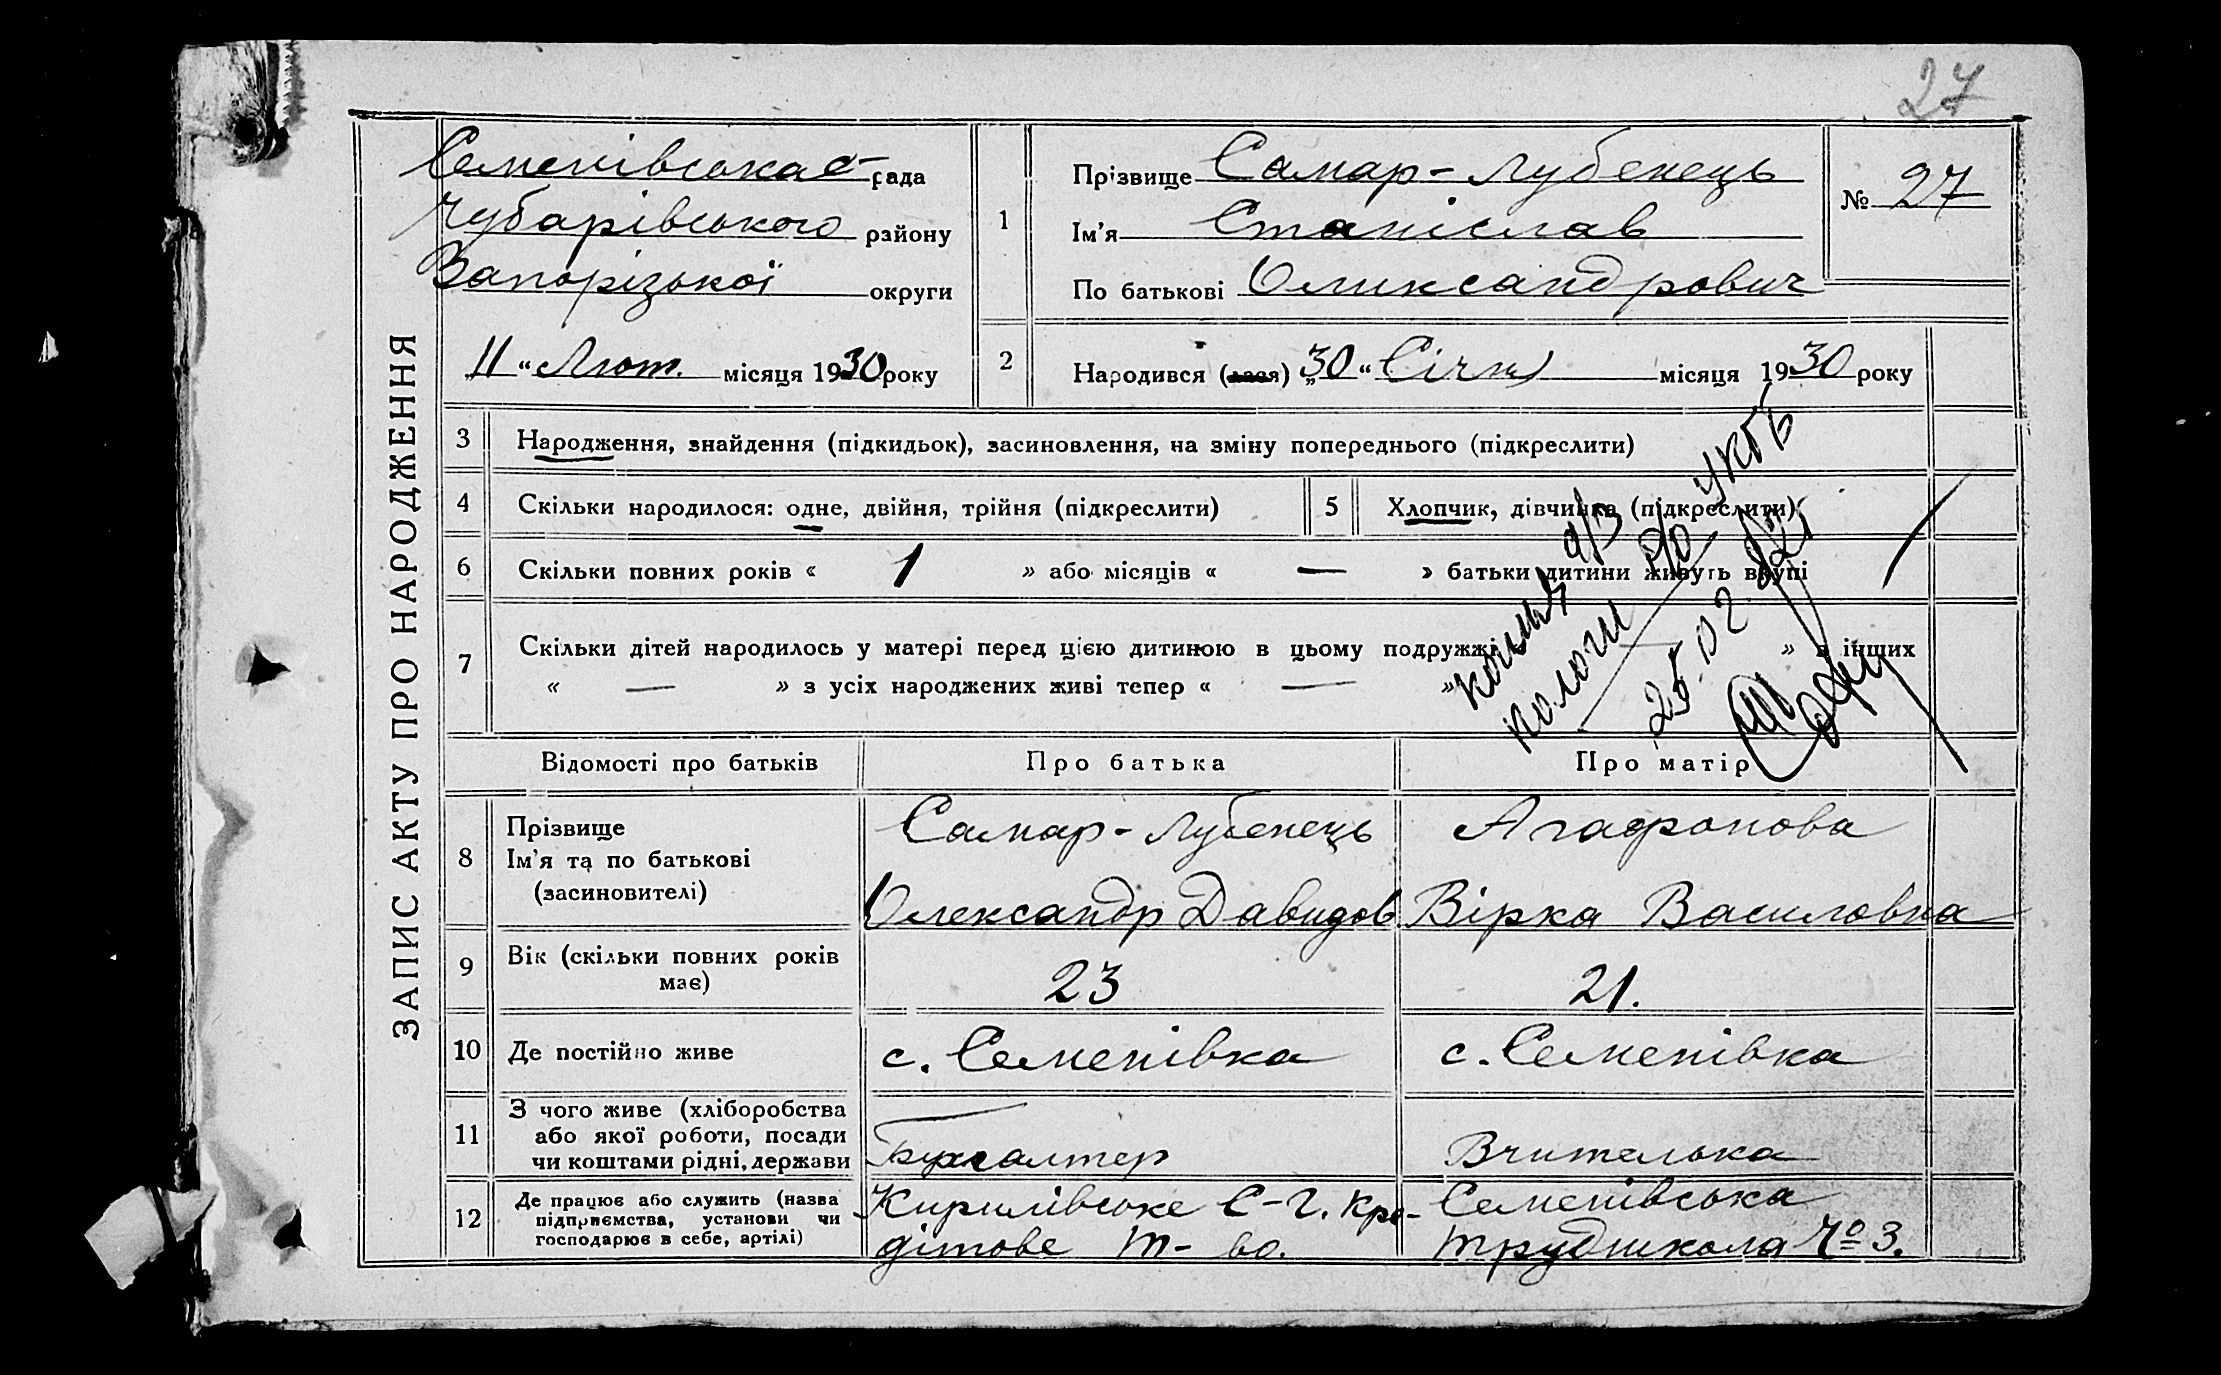 27
ЗАПИС АКТУ ПРО НАРОДЖЕННЯ
Семенівська с-рада
Чубарівського району
Запорізької округи
„ 11 “ Лют. місяця 1930 року
1
Прізвище Самар-Лубенець
Ім'я Станіслав
По батькові Оликсандрович
№ 27
2
Народився (лася) „30“ Січня місяця 1930 року
3 Народження, знайдення (підкидьок), засиновлення, на зміну попереднього (підкреслити)
4 Скільки народилося: одне, двійня, трійня (підкреслити)
5 Хлопчик, дівчинка (підкреслити)
6 Скільки повних років « 1 » або місяців « — » батьки дитини живуть вкупі
7 Скільки дітей народилось у матері перед цією дитиною в цьому подружжі — » в інших
« — » з усіх народжених живі тепер « — »
25.02.
Відомості про батьків
Про батька
Про матір
8
Прізвище
Ім'я та по батькові
(засиновителі)
Самар-Лубенець
Олександр Давидов
Агафонова
Вірка Василовна
9
Вік (скільки повних років
має)
23
21.
10 Де постійно живе
с. Семенівка
с. Семенівка
11
З чого живе (хліборобства
або якої роботи, посади
чи коштами рідні, держави
Бухгалтер
Вчителька
12
Де працює або служить (назва
підприємства, установи чи
господарює в себе, артілі)
Кирилівське С-Г. кре-
дітове т-во.
Семенівська
трудшкола № 3.